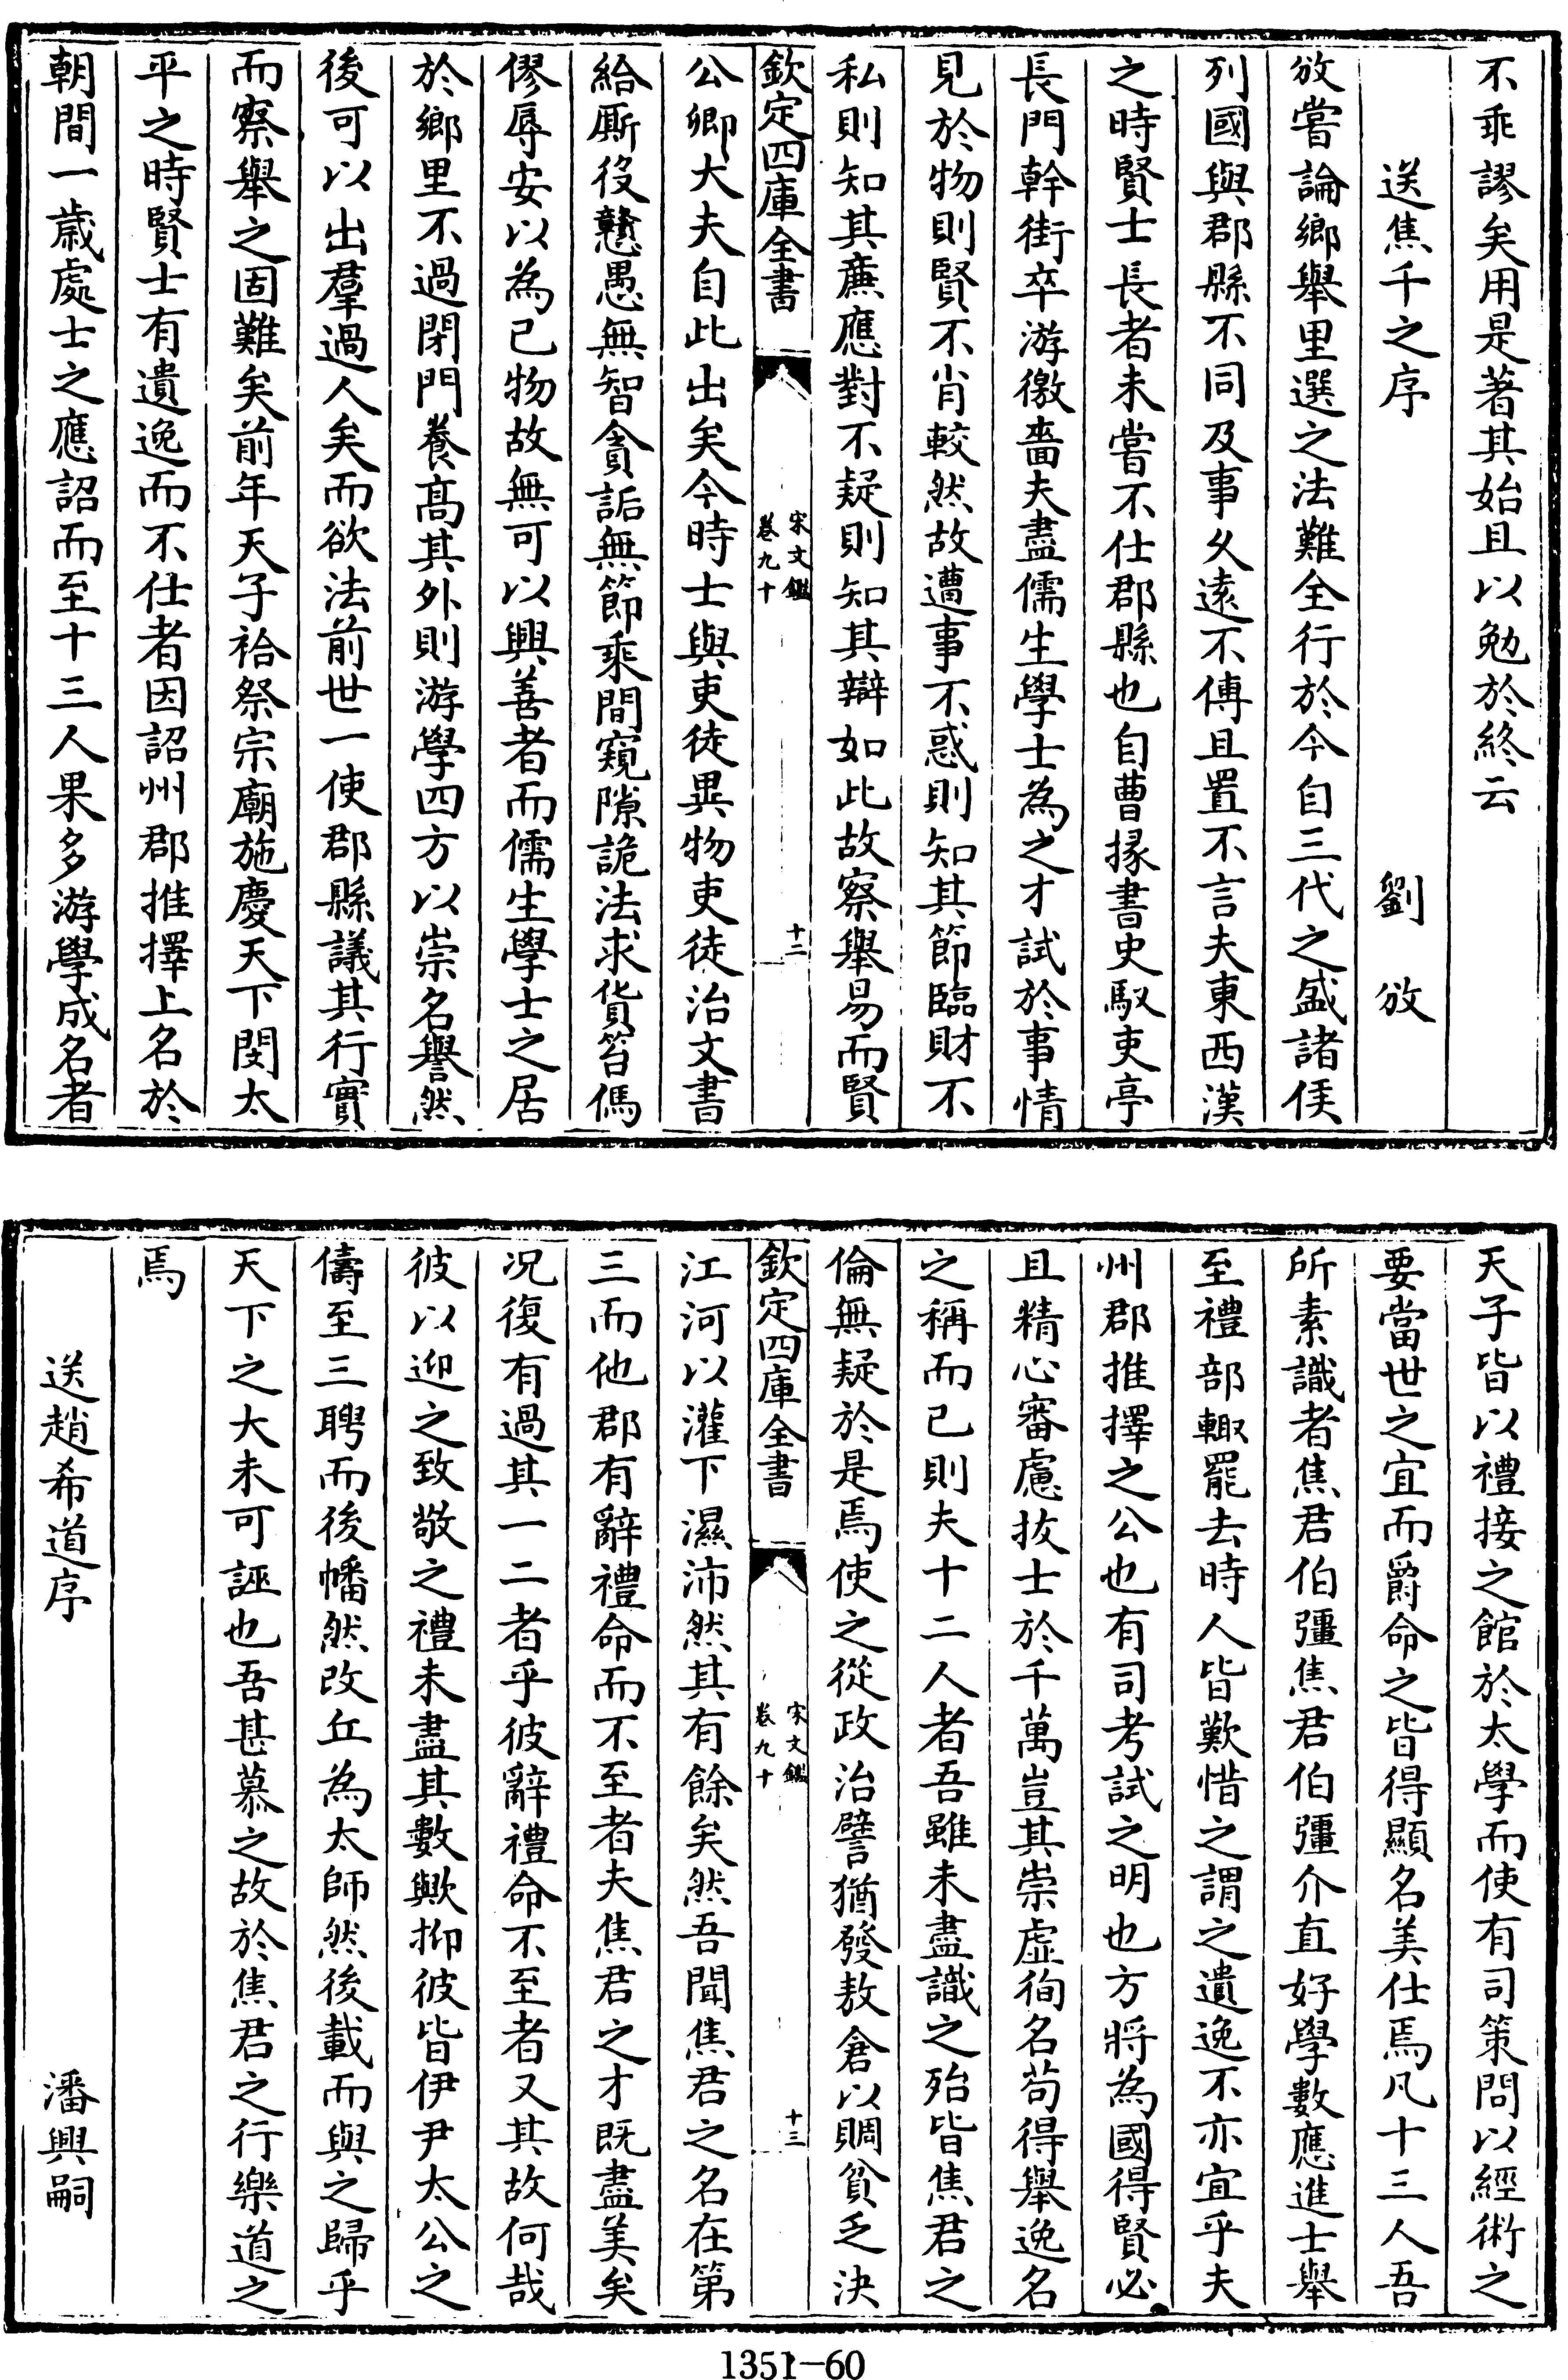 不乖謬矣用是著其始且以勉於終云
送焦千之序　劉攽
攽嘗論鄉舉里選之法難全行於今自三代之盛諸侯
列國與郡縣不同及事久遠不傳且置不言夫東西漢
之時賢士長者未嘗不仕郡縣也自曹掾書史馭吏亭
長門幹街卒游徼嗇夫盡儒生學士為之才試於事情
見於物則賢不肖較然故遭事不惑則知其節臨財不
私則知其廉應對不疑則知其辯如此故察舉易而賢
欽定四庫全書　宋文鑑卷九十　十二
公卿大夫自此出矣今時士與吏徒異物吏徒治文書
給厮役戇愚無智貪詬無節乘間窺隙詭法求貨笞傌
僇辱安以為已物故無可以興善者而儒生學士之居
於鄉里不過閉門養髙其外則游學四方以崇名譽然
後可以出羣過人矣而欲法前世一使郡縣議其行實
而察舉之固難矣前年天子祫祭宗廟施慶天下閔太
平之時賢士有遺逸而不仕者因詔州郡推擇上名於
朝間一歲處士之應詔而至十三人果多游學成名者
天子皆以禮接之館於太學而使有司策問以經術之
要當世之宜而爵命之皆得顯名美仕焉凡十三人吾
所素識者焦君伯彊焦君伯彊介直好學數應進士舉
至禮部輙罷去時人皆歎惜之謂之遺逸不亦宜乎夫
州郡推擇之公也有司考試之明也方將為國得賢必
且精心審慮抜士於千萬豈其崇虛徇名苟得舉逸名
之稱而已則夫十二人者吾雖未盡識之殆皆焦君之
倫無疑於是焉使之從政治譬猶發敖倉以賙貧乏決
欽定四庫全書　宋文鑑卷九十　十三
江河以灌下濕沛然其有餘矣然吾聞焦君之名在第
三而他郡有辭禮命而不至者夫焦君之才既盡美矣
况復有過其一二者乎彼辭禮命不至者又其故何哉
彼以迎之致敬之禮未盡其數歟抑彼皆伊尹太公之
儔至三聘而後幡然改丘為太師然後載而與之歸乎
天下之大未可誣也吾甚慕之故於焦君之行樂道之
焉
送趙希道序　潘興嗣
1351-60